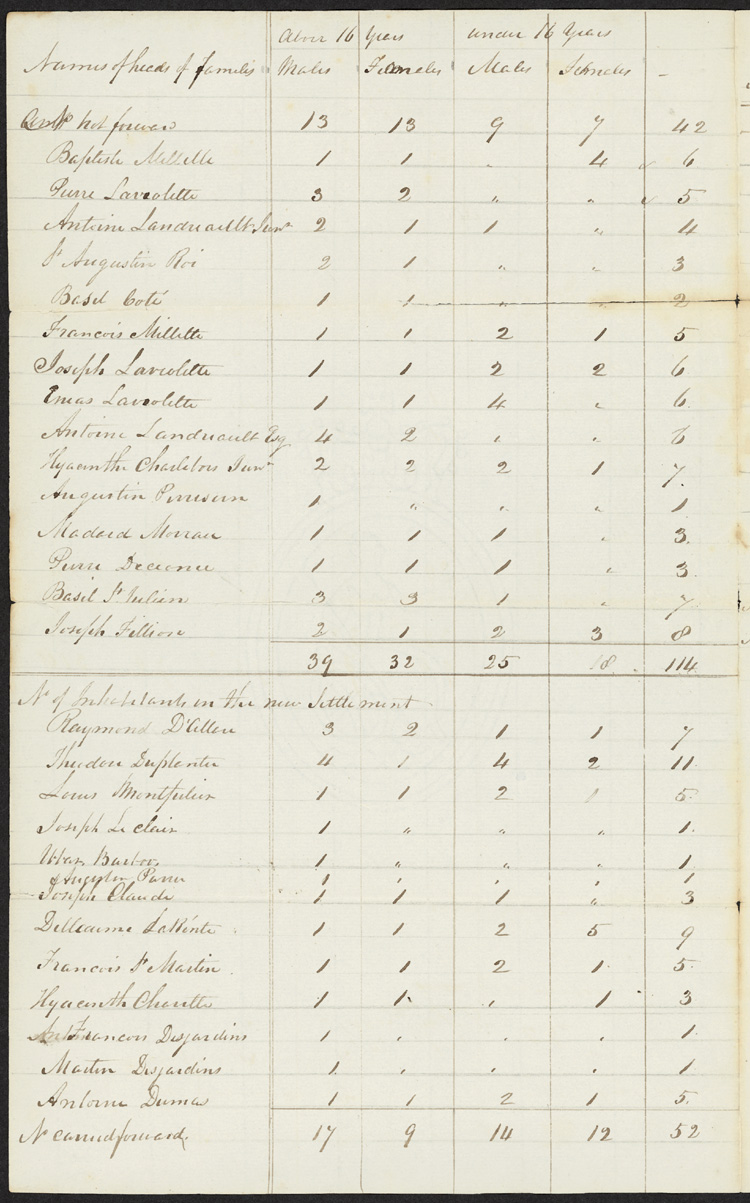 above 16 Years under 16 Years
Names of heads of families Males Females Males Females -
Amt bot forward 13 13 9 7 42
Baptiste Millette 1 1 „ 4 6
Pierre Laviolette 3 2 „ „ 5
Antoine Landriault Junr 2 1 1 „ 4
St Augustin Roi 2 1 „ „ 3
Basil Coté 1 1 „ „ 2
Francois Millette 1 1 2 1 5
Joseph Laviolette 1 1 2 2 6
Emas Laviolette 1 1 4 „ 6
Antoine Landriault Esq 4 2 „ „ 6
Hyacinthe Charlebois Junr 2 2 2 1 7
Augustin 1 „ „ „ 1
Madard Moreau 1 1 1 „ 3
Pierre 1 1 1 „ 3
Basil St Julien 3 3 1 „ 7
Joseph Fillion 2 1 2 3 8
39 32 25 18 114
No of Inhabitants in the new Settlement
Raymond D'Allau 3 2 1 1 7
Theodore Duplanter 4 1 4 2 11
Louis Montpelier 1 1 2 1 5
Joseph Le Clair 1 „ „ „ 1
Urban Barbou 1 „ „ „ 1
Augustin 1 „ „ „ 1
Joseph Claude 1 1 1 „ 3
LaRénte 1 1 2 5 9
Francois St Martin 1 1 2 1 5
Hyacinth 1 1 „ 1 3
Francois Desjardins 1 „ „ „ 1
Martin Desjardins 1 „ „ „ 1
Antoine Dumas 1 1 2 1 5
No carried forward 17 9 14 12 52